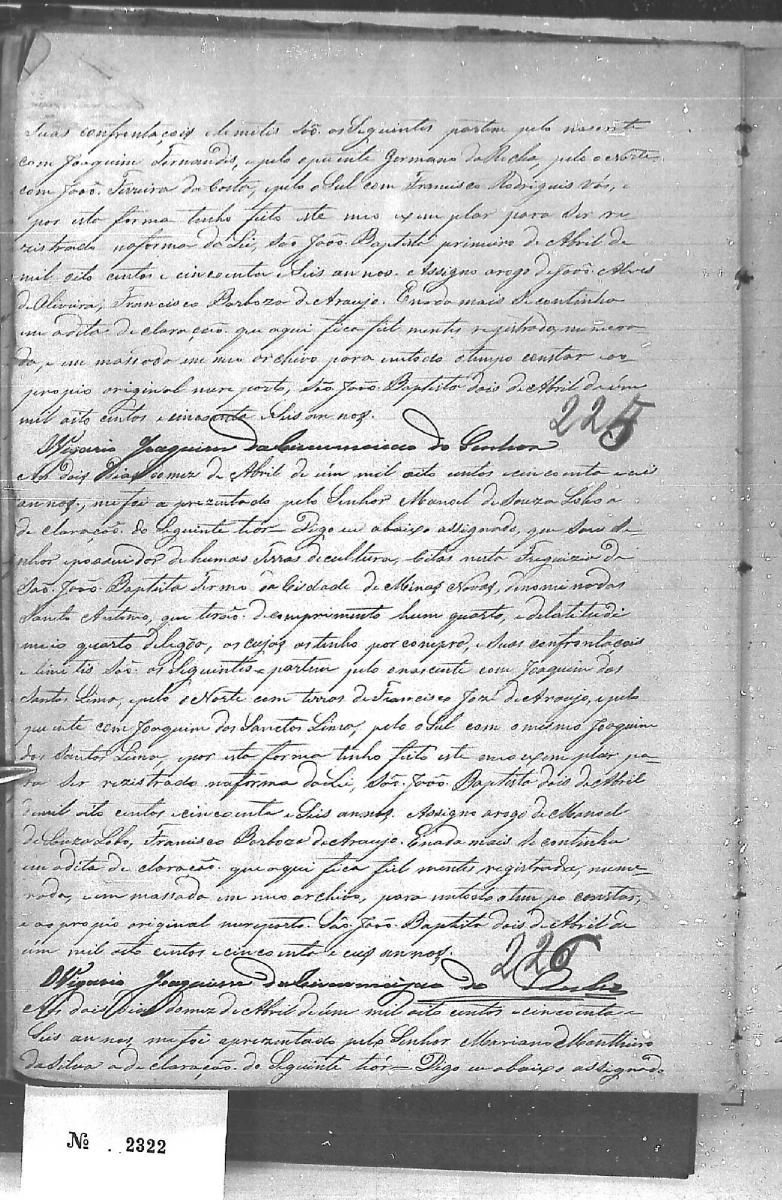 Suas confrentaçois elemetes São os Seguintes partem pelo nascente
com Joaquim Fernandis, epelo opuente Germano da Rocha, pelo o Norte
com João Teixeira da Costa, epelo o Sul com Francisco Rodriguis Vás, e
por esta forma tenho feito este meo exemplar para Ser re
zistrado naforma da Lei, São João Baptista primeiro de Abril de
mil oito centos e cincoenta e Seis annos. Assigno arogo de João Alves
de Oliveira, Francisco Barboza de Araujo. Enada mais Se continha
em adita de claração que aqui fica fiel mentes registrada, numera
da, e em massada em meo archivo para emtodo otempo constar e ao
propio original mere porto, São João Baptista dois de Abril de úm
mil oito centos e cincoenta e Seis annos.
225
OVigario Joaquim da Circumcicao do Senhor
Aos dois Dias domez de Abril de úm mil oito centos e cincoenta e ceis
annos, me foi a prezentado pelo Senhor Manoel de Souza Lobo a
de claração do Seguinte teór — Digo eu abaixo assignado, que Sou Se-
nhor epossuidor de humas Terras decultura, Citas nesta Freguizia de
São João Baptista Termo da Cidade de Minas Novas, denominadas
Santo Antonio, que terão de comprimento hum quarto, e delatitude
meio quarto delegoa, os cujos ostenho por compra, e Suas confrontacois
e limetis São os Seguintes e partem pelo onascente com Joaquim dos
Santos Lima, epelo o Norte com terras de Francisco Jozé de Araujo, e pelo
puente com Joaquim dos Sanctos Lima, pelo o Sul com o mesmo Joaquim
dos Santos Lima, epor esta forma tenho feito este meo exemplar pa-
ra Ser rezistrado naforma da Lei, São João Baptista dois de Abril
demil oito centos e cincoenta e Seis annos. Assigno arogo de Manoel
de Souza Lobo, Francisco Barboza de Araujo. Enada mais Se continha
em adita de claração que aqui fica fiel mentes registrada, nume-
rada, e em massada em meo archivo, para emtodo otempo constar,
e ao propio original mere porto. São João Baptista dois de Abril de
úm mil oito centos e cincoenta e ceis annos.
226
OVigario Joaquim da Circumcicao do Senhor
Aos dois Dias domez de Abril de úm mil oito centos e cincoenta e
Seis annos, me foi aprezentado pelo Senhor Mariano Montheiro
da Silva a de claração do Seguinte teór — Digo eu abaixo assignado
Nº 2322